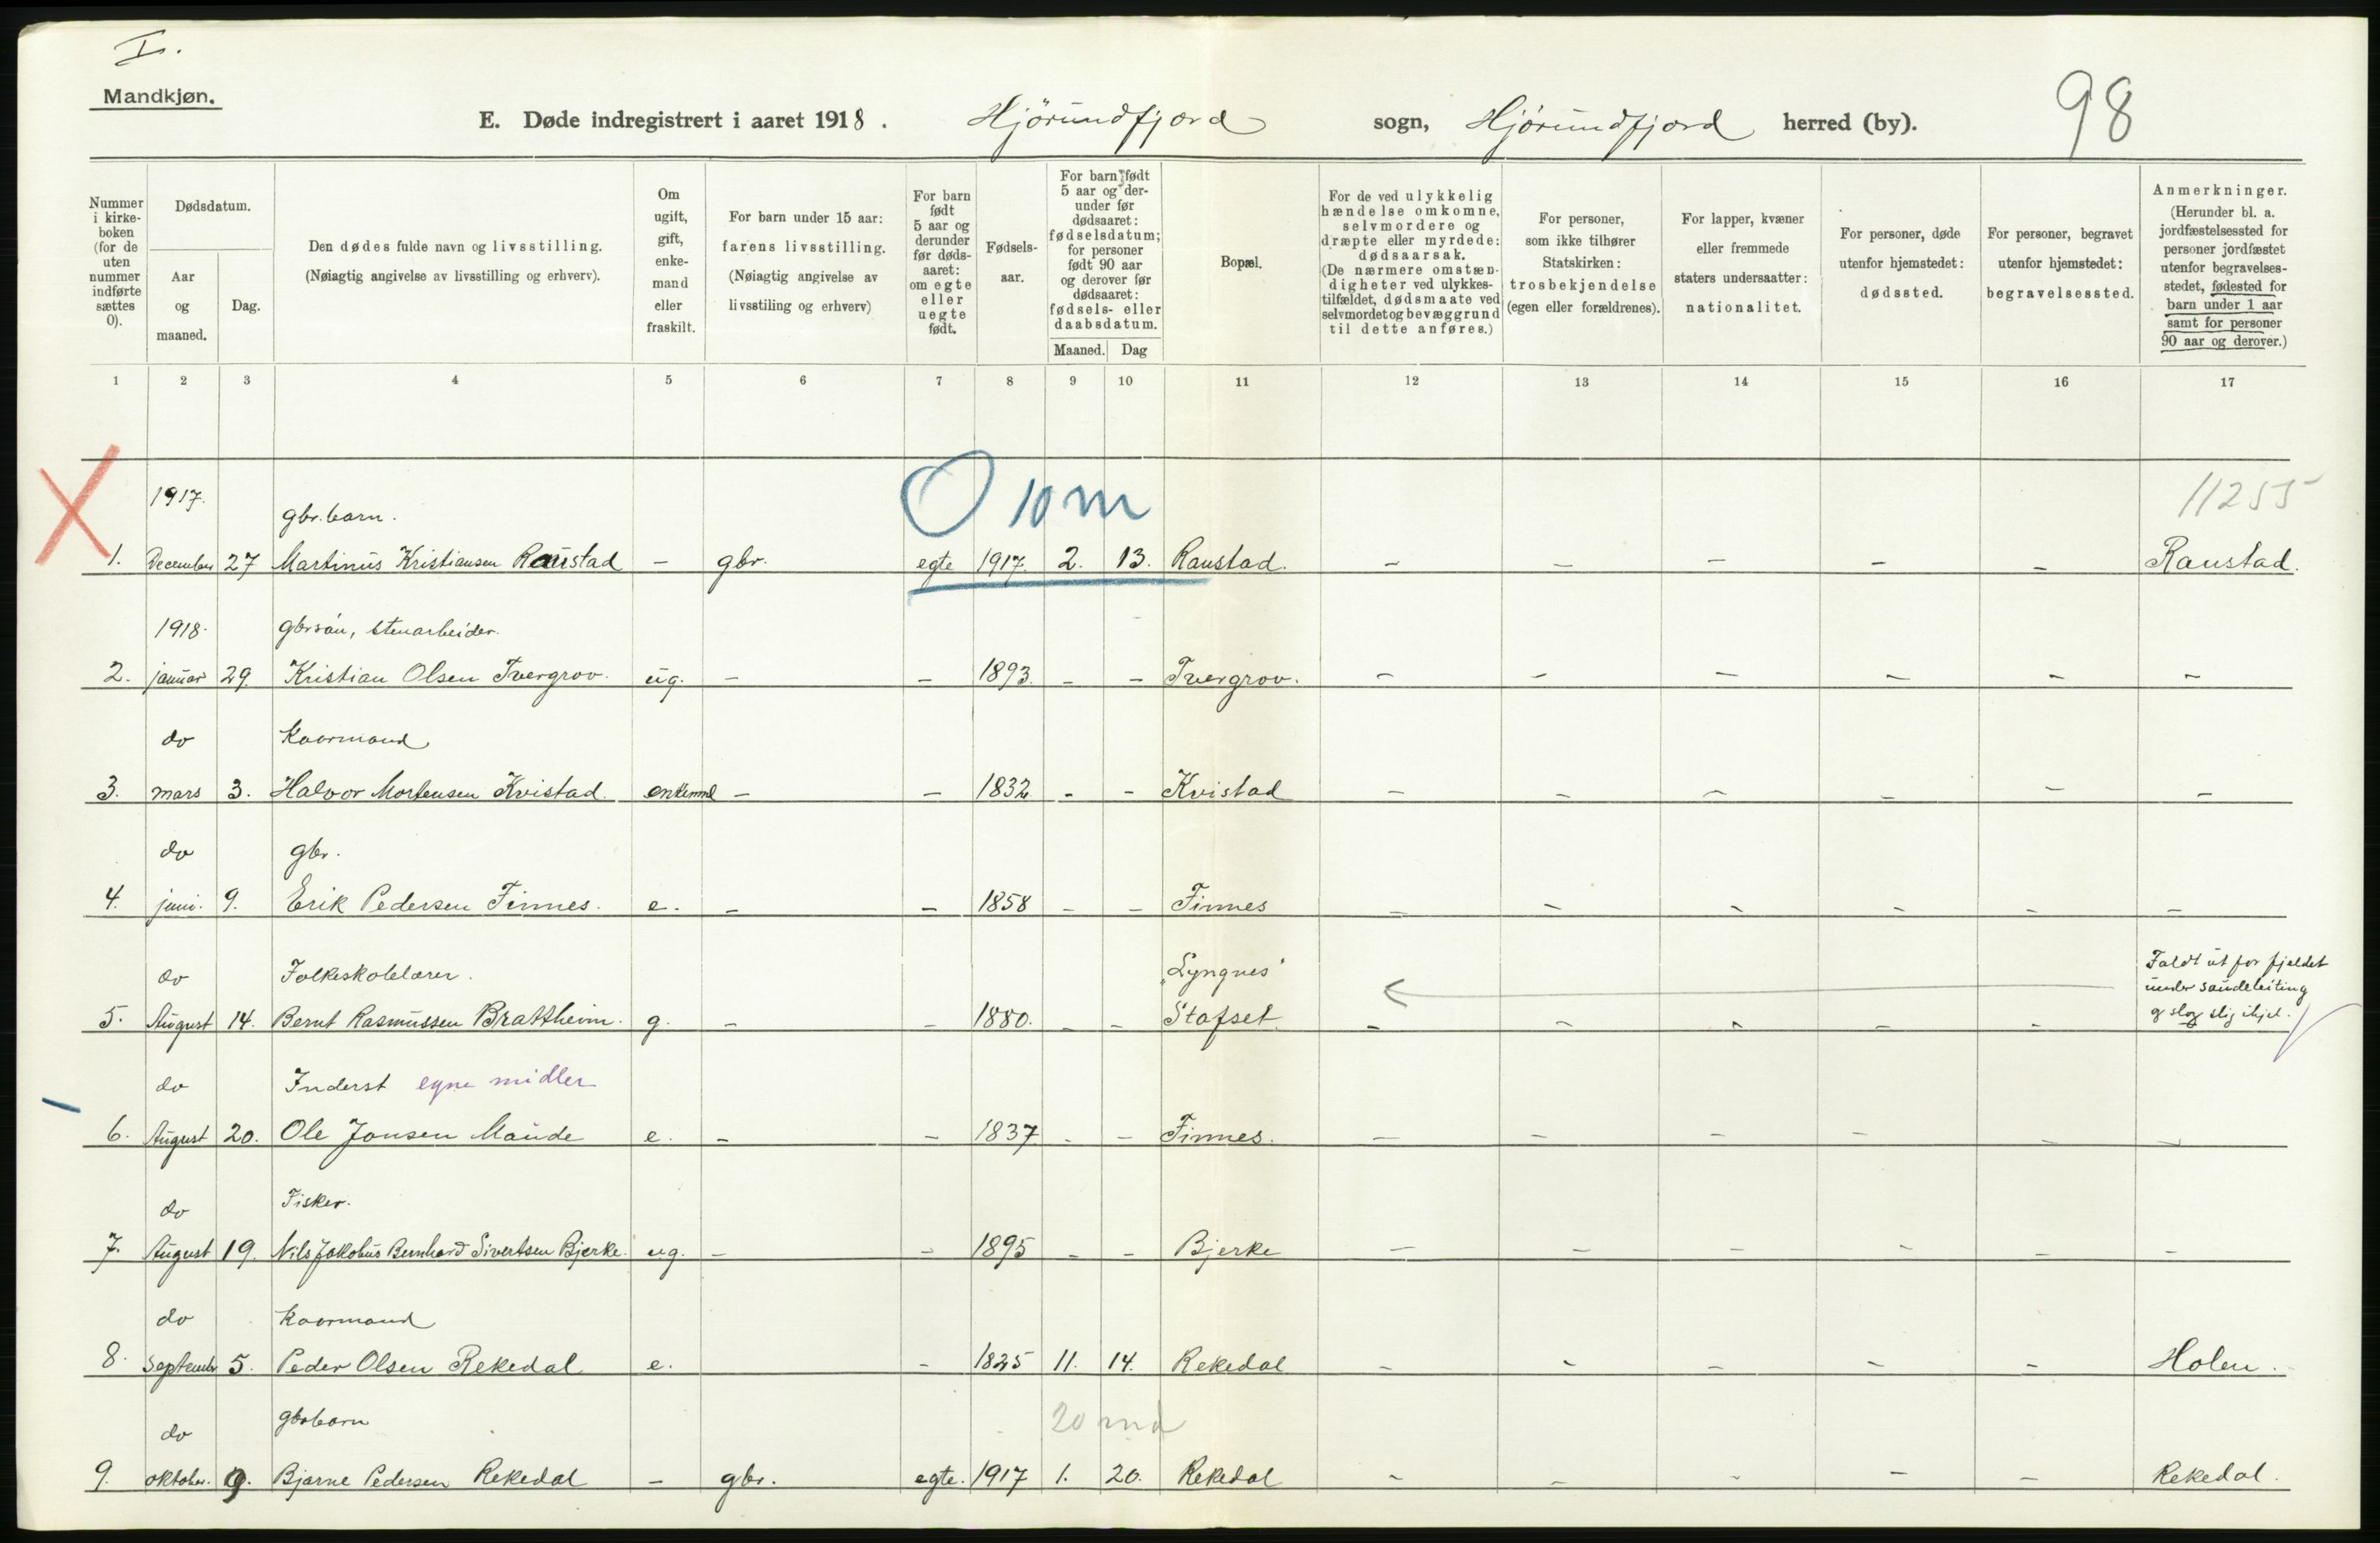 I.
Mandkjøn.
E. Døde indregistrert i aaret 1918. Hjörundfjord sogn, Hjörundfjord herred (by). 98
Nummer i kirke-boken (for de uten nummer indførte sættes 0).
Dødsdatum.
Aar og maaned.
Dag.
Den dødes fulde navn og livsstilling.
(Nøiagtig angivelse av livsstilling og erhverv).
Om ugift, gift, enke-mand eller fraskilt.
For barn under 15 aar: farens livsstilling. (Nøiagtig angivelse av livsstiling og erhverv)
For barn født 5 aar og derunder før døds-aaret: om egte eller uegte født.
Fødsels-aar.
For barn født 5 aar og der-under før dødsaaret: fødselsdatum; for personer født 90 aar og derover før dødsaaret: fødsels- eller daabsdatum.
Maaned. Dag
Bopæl.
For de ved ulykkelig hændelse omkomne, selvmordere og dræpte eller myrdede: dødsaarsak. (De nærmere omstæn-digheter ved ulykkes-tilfældet, dødsmaate ved selvmordet og bevæggrund til dette anføres.)
For personer, som ikke tilhører Statskirken: trosbekjendelse (egen eller forældrenes).
For lapper, kvæner eller fremmede staters undersaatter: nationalitet.
For personer, døde utenfor hjemstedet: dødssted.
For personer, begravet utenfor hjemstedet: begravelsessted.
Anmerkninger. (Herunder bl. a. jordfæstelsessted for personer jordfæstet utenfor begravelses-stedet, fødested for barn under 1 aar samt for personer 90 aar og derover.)
1 2 3 4 5 6 7 8 9 10 11 12 13 14 15 16 17
1917. gbr. barn. O 10 m 11255
1. December 27 Martinus Kristiansen Raustad - gbr. egte 1917 2. 13. Raustad. - - - - - Raustad.
1918. gbrsøn, stenarbeider.
2. januar 29. Kristian Olsen Tvergrov. ug. - - 1893. - - Tvergrov. - - - - - -
do Kaarmand
3. mars 3. Halvor Mortensen Kvistad. enkemd - - 1832 - - Kvistad - - - - - -
do gbr.
4. juni. 9. Erik Pedersen Finnes. e. - - 1858 - - Finnes - - - - - -
do Folkeskolelærer. "Lyngnes" Faldt ut for fjeldet
under saueleiting
5. August 14. Bernt Rasmussen Brattheim. g. - - 1880. - - Stafset - - - - - og slog slig ihjel.
do Inderst egne midler
6. August 20. Ole Jonsen Maude e. - - 1837 - - Finnes. - - - - - -
do Fisker.
7. August 19. Nils Jakobus Bernhard Sivertsen Bjerke. ug. - - 1895 - - Bjerke - - - - - -
do Kaarmand
8. September 5. Peder Olsen Rekedal e. - 1825 11. 14. Rekedal - - - - - Holen.
do gbrbarn 20 md
9. oktober. 9. Bjarne Pedersen Rekedal - gbr. egte. 1917 1. 20. Rekedal - - - - - Rekedal.